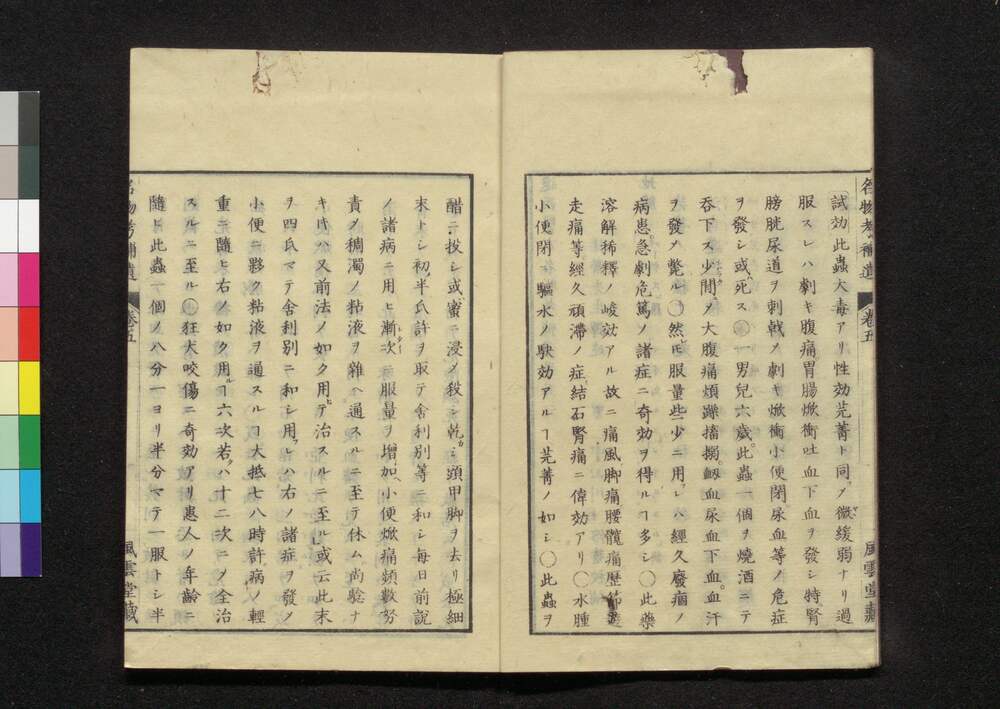 名物考補遺 卷五 風雲堂藏
試効此蟲大毒アリ性効芫菁ト同メ微緩弱ナリ過
服スレハ劇キ腹痛胃腸焮衝吐血下血ヲ發シ特腎
膀胱尿道ヲ刺戟メ劇キ焮衝小便閉尿血等ノ危症
ヲ發シ或ハ死ス○一男兒六歳此蟲一個ヲ燒酒ニテ
呑下ス少間メ大腹痛煩躁搐搦衂血尿血下血血汗
ヲ發メ斃ル○然𪜈服量些少ニ用レハ經久廢痼ノ
病患急劇危篤ノ諸症ニ奇効ヲ得ルヿ多シ○此藥
溶解稀釋ノ峻効アル故ニ痛風脚痛腰髖痛歷節
走痛等經久頑滯ノ症結石腎痛ニ偉効アリ○水腫
小便閉ニ驅水ノ駃効アルヿ芫菁ノ如シ○此蟲ヲ
醋ニ投シ或蜜ニ浸メ殺シ乾シ頭甲脚ヲ去リ極細
末トシ初メ半氏許ヲ取テ舍利別等ニ和シ每日前説
ノ諸病ニ用ヒ漸次ニ服量ヲ增加ヘ小便焮痛頻數努
責メ稠濁ノ粘液ヲ雜ヘ通スルニ至テ休ム尚驗ナ
キ𪜈ハ又前法ノ如ク用ヒテ治スルニ至ル或云此末
ヲ四氏マテ舍利別ニ和シ用レハ右ノ諸症ヲ發メ
小便ニ夥ク粘液ヲ通スルヿ大抵七八時許病ノ輕
重ニ隨ヒ右ノ如ク用ルヿ六次若クハ十二次ニメ全治
スルニ至ル○狂犬咬傷ニ奇効アリ患人ノ年齡ニ
隨ヒ此蟲一個ノ八分一ヨリ半分マテ一服トシ半
名物考補遺 卷五 風雲堂藏